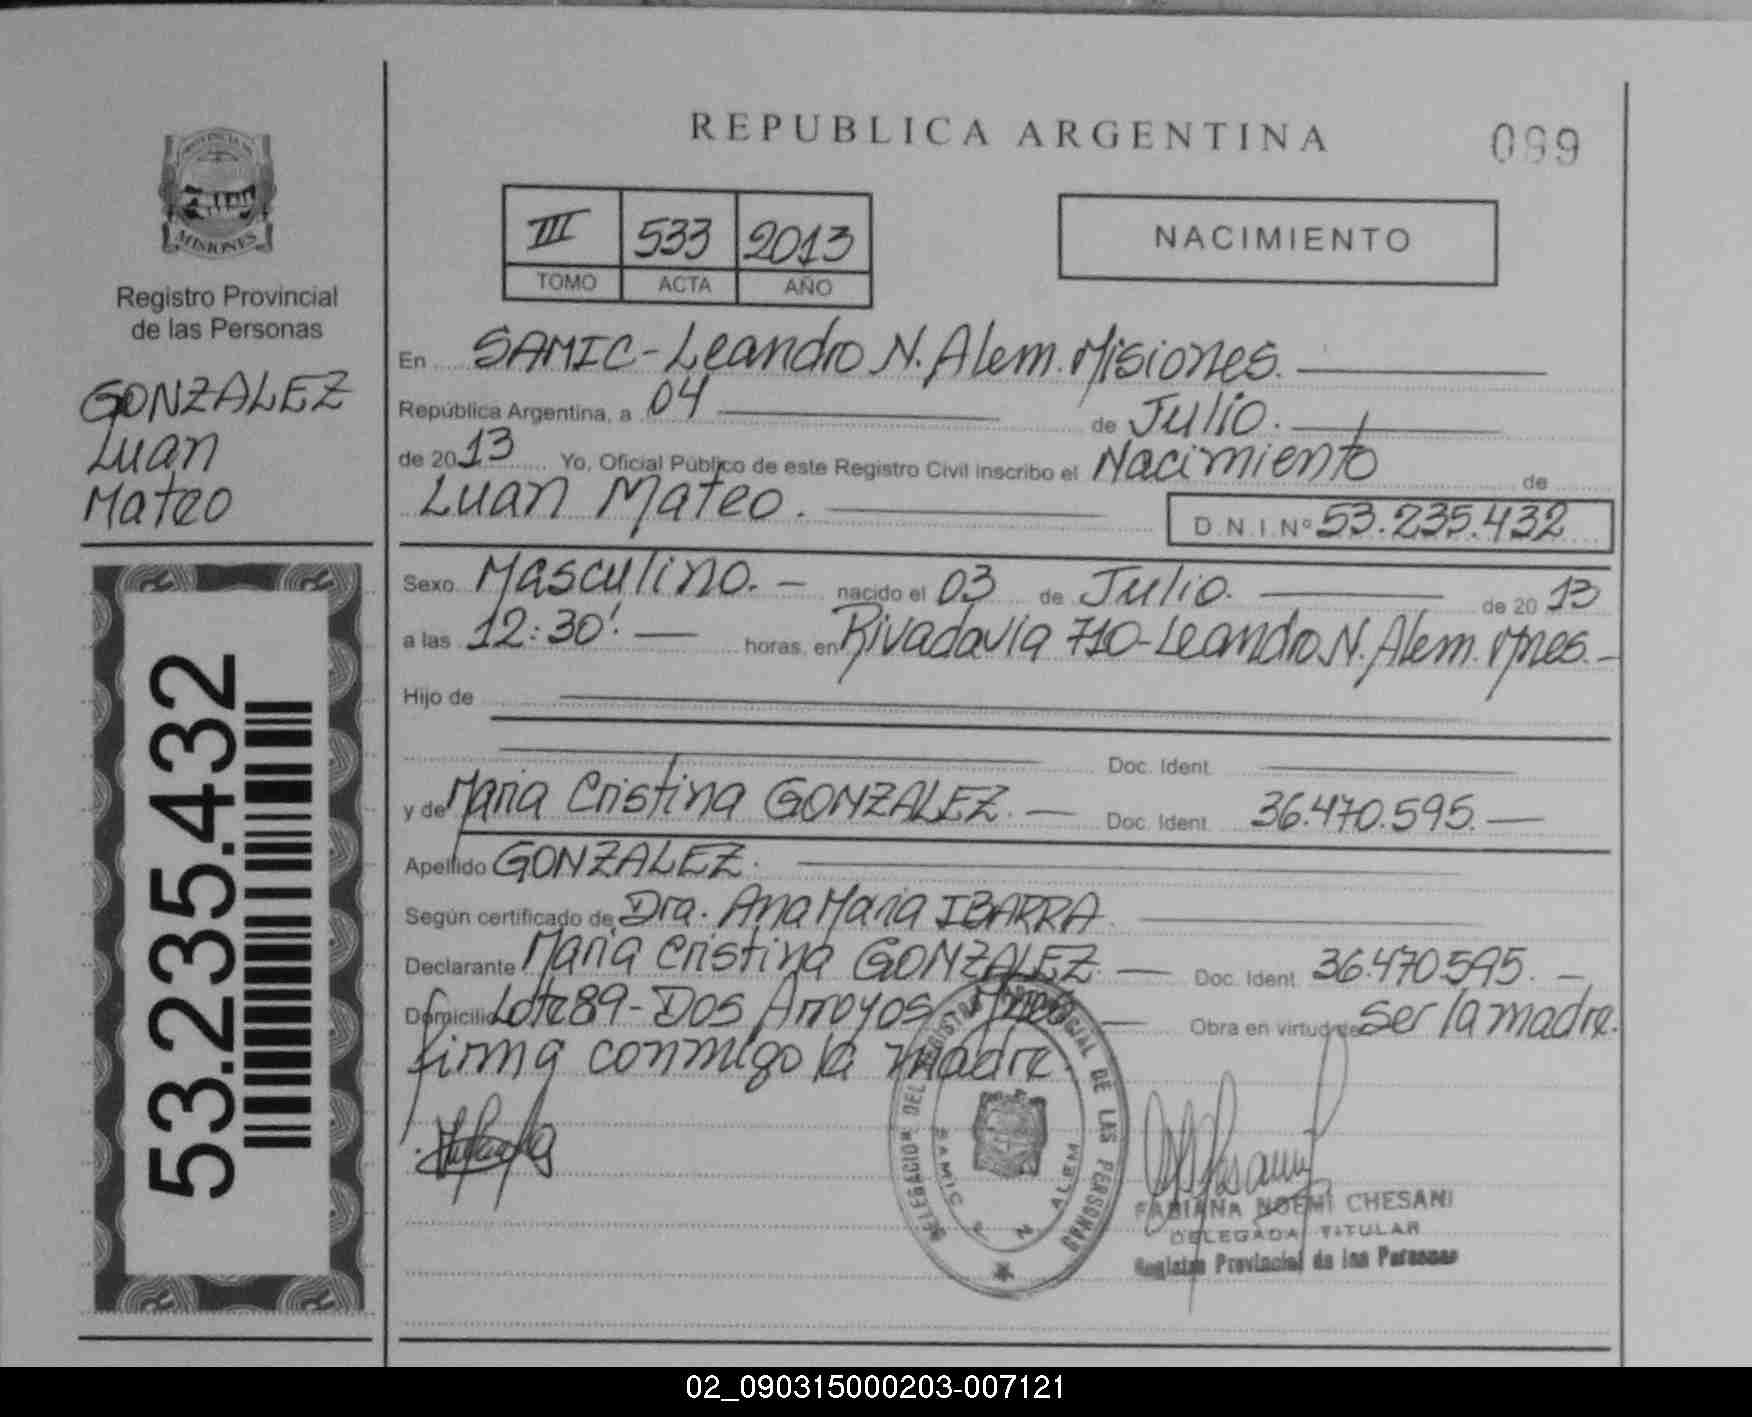 REPUBLICA ARGENTINA
099
PROVINCIA DE
MISIONES
Registro Provincial
de las Personas
GONZALEZ
Luan
Mateo
III 533 2013
TOMO ACTA AÑO
NACIMIENTO
En SAMIC-Leandro N. Alem. Misiones.
República Argentina, a 04 de Julio.
de 2013 Yo, Oficial Público de este Registro Civil inscribo el Nacimiento de
Luan Mateo. D.N.I.Nº 53.235.432
Sexo Masculino. nacido el 03 de Julio. de 2013
a las 12:30'. horas, en Rivadavia 710-Leandro N. Alem. Mnes.
Hijo de
Doc. Ident.
y de Maria Cristina GONZALEZ. Doc. Ident. 36.470.595.
Apellido GONZALEZ.
Según certificado de Dra. Ana Maria IBARRA
Declarante Maria Cristina GONZALEZ. Doc. Ident. 36.470.595.
Domicilio Lote 89-Dos Arroyos Mnes Obra en virtud de Ser la madre.
firma conmigo la madre.
DELEGACION DEL REGISTRO PROVINCIAL DE LAS PERSONAS
SAMIC L N ALEM
FABIANA NOEMI CHESANI
DELEGADA TITULAR
Registro Provincial de las Personas
53.235.432
02_090315000203-007121